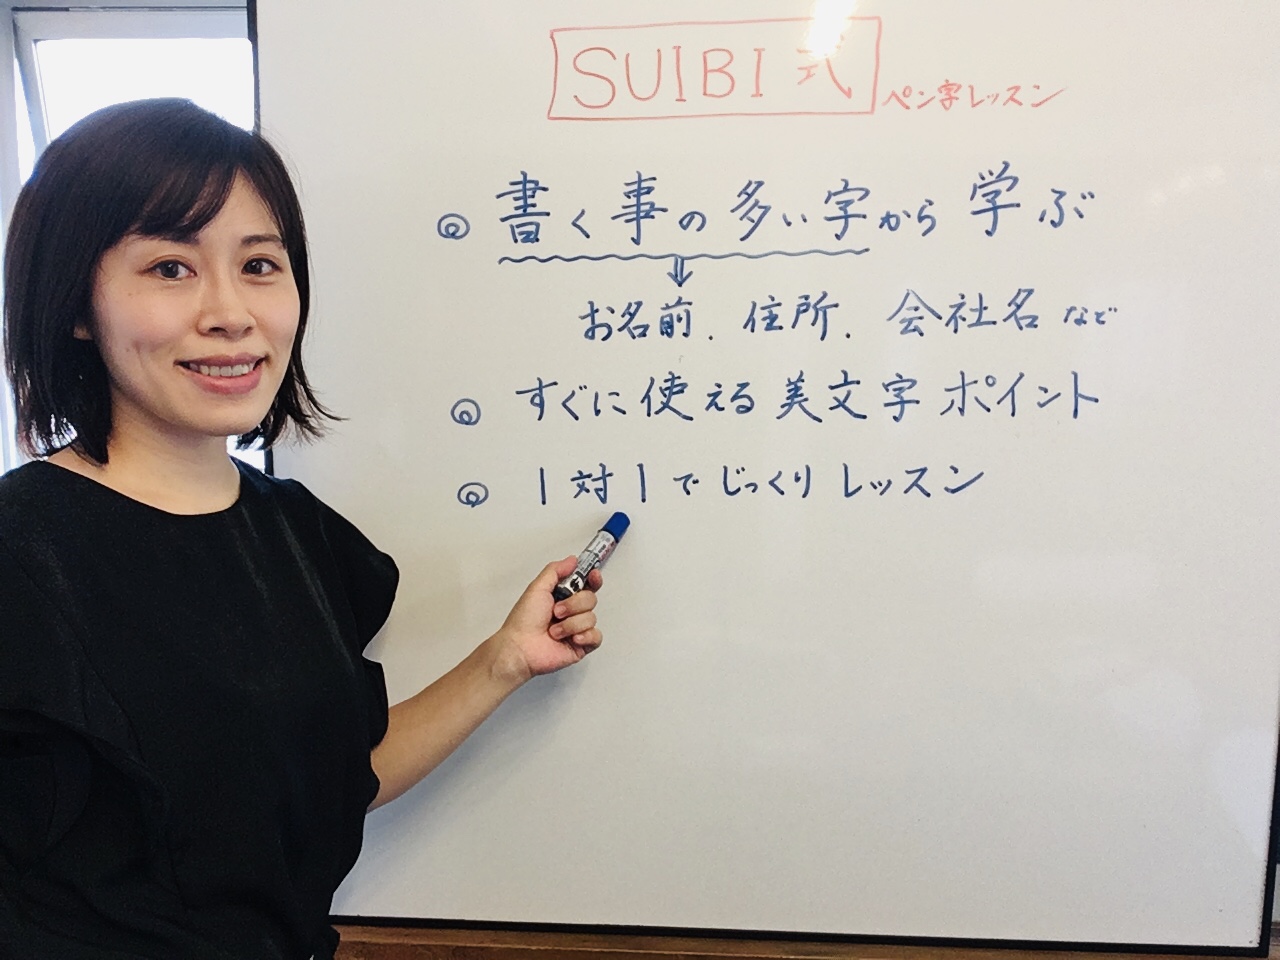 SUIBI式 ペン字レッスン
◎ 書く事の多い字から学ぶ
⇓
お名前．住所．会社名など
◎ すぐに使える美文字ポイント
◎ 1対1でじっくりレッスン